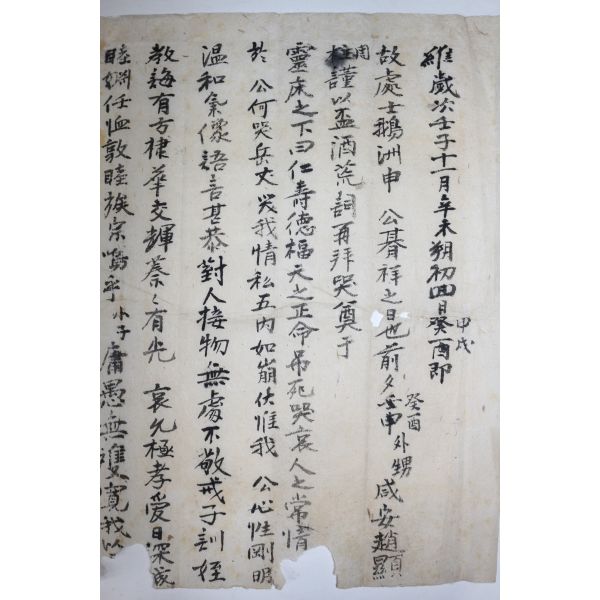 維歲次壬子十一月辛未朔初四日癸酉即
甲戌
故處士鵝洲申 公朞祥之日也前夕壬申外甥咸安趙顯
癸酉
周
謹以盃酒荒詞再拜哭奠于
靈床之下曰仁壽德福天之正命吊死哭哀人之常情
於 公何哭兵丈哭我情私五內如崩伏惟我 公心性剛明
温和氣像語言甚恭對人接物無處不敬戒子訓姪
教誨有方棣華交輝蔡々有光 哀允極孝愛日深誠
睦婣任恤敦睦族宗嗚乎小子庸愚無雙寬我以